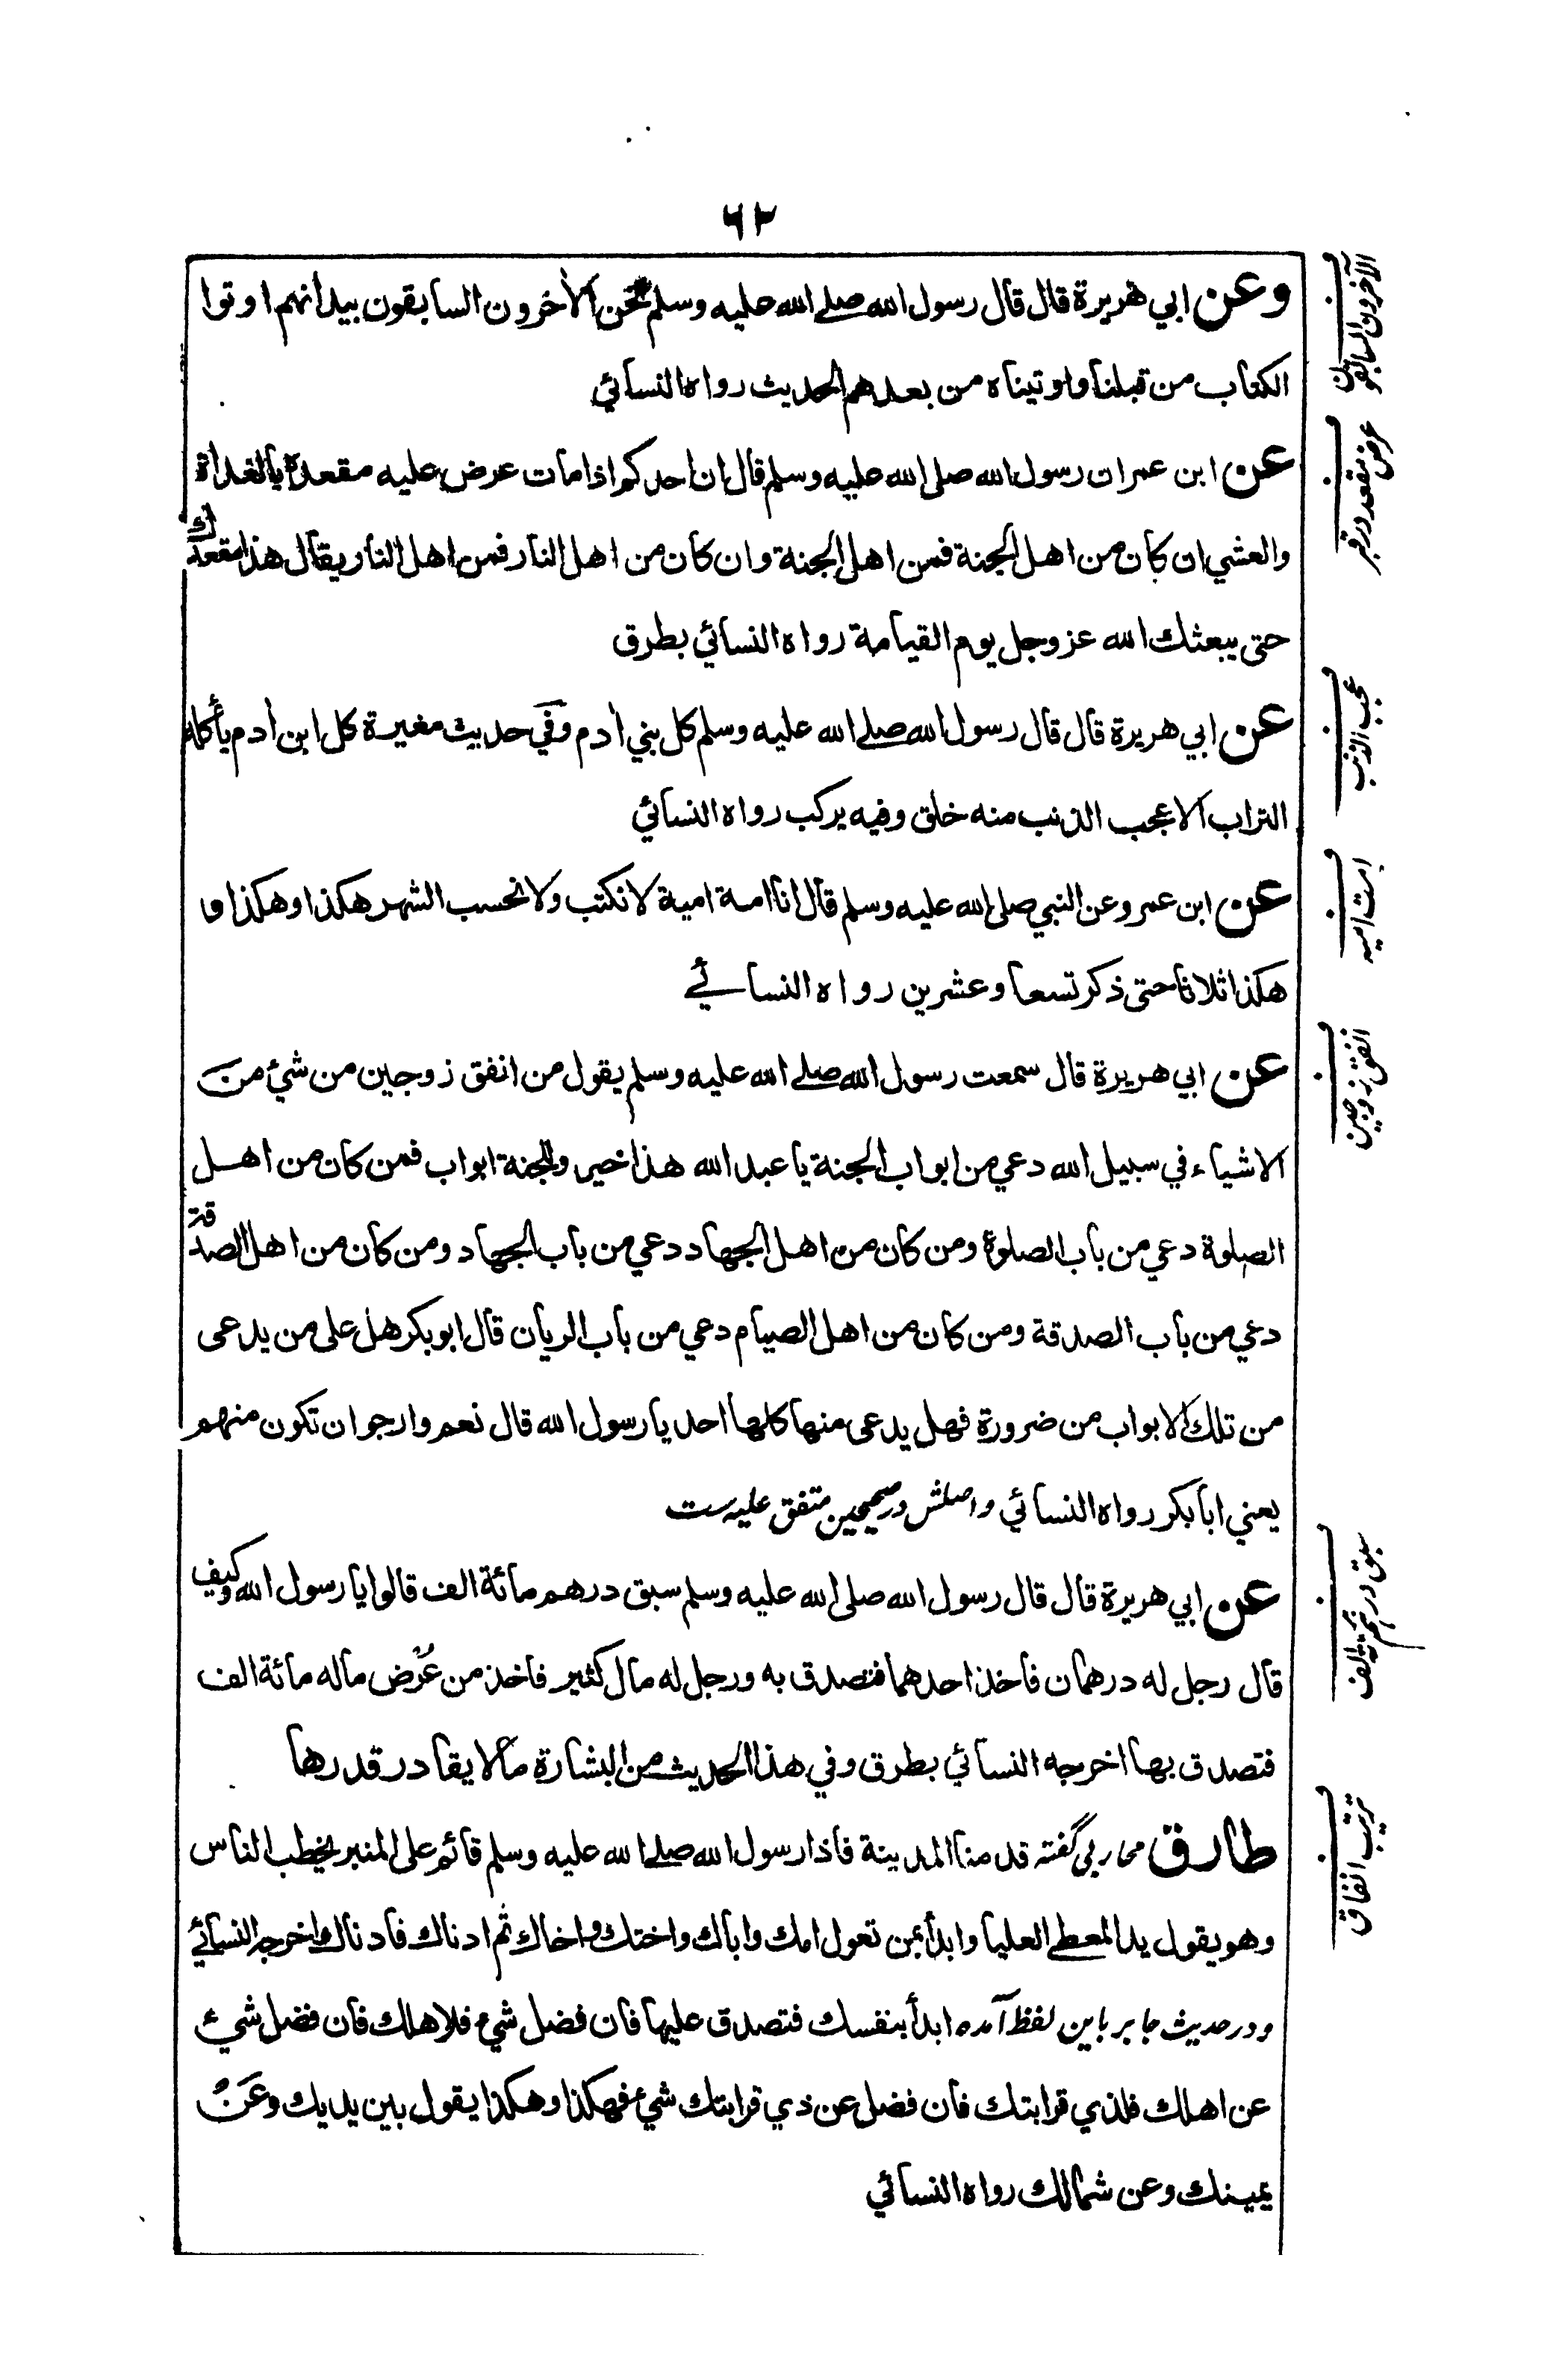 ٦٢
وعن ابي هريرة قال قال رسول الله صلے الله عليه وسلم نحن الأخرون السابقون بيد أنهم اوتوا
الكتاب من قبلنا واوتيناه من بعدهم الحديث رواه النسائي
عن ابن عمر ان رسول الله صلى الله عليه وسلم قال ان احدكم اذا مات عرض عليه مقعده بالغداة
والعشي ان كان من اهل الجنة فمن اهل الجنة وان كان من اهل النار فمن اهل النار يقال هذا مقعدك
حتى يبعثك الله عز وجل يوم القيامة رواه النسائي بطرق
عن ابي هريرة قال قال رسول الله صلے الله عليه وسلم كل بني أدم وفي حديث مغيرة كل ابن أدم يأكله
التراب الا عجب الذنب منه خلق وفيه يركب رواه النسائي
عن ابن عمر وعن النبي صلى الله عليه وسلم قال انا امة امية لا نكتب ولا نحسب الشهر هكذا وهكذا و
هكذا ثلاثا حتى ذكر تسعا وعشرين رواه النسائي
عن ابي هريرة قال سمعت رسول الله صلے الله عليه وسلم يقول من انفق زوجين من شيء من
الاشياء في سبيل الله دعي من ابواب الجنة يا عبد الله هذا خير وللجنة ابواب فمن كان من اهل
الصلوة دعي من باب الصلوة ومن كان من اهل الجهاد دعي من باب الجهاد ومن كان من اهل الصدقة
دعي من باب الصدقة ومن كان من اهل الصيام دعي من باب الريان قال ابوبكر هل على من يدعى
من تلك الابواب من ضرورة فهل يدعى منها كلها احد يا رسول الله قال نعم وارجوان تكون منهم
يعني ابابكر رواه النسائي واصلش در صحيحين متفق عليه ست
عن ابي هريرة قال قال رسول الله صلى الله عليه وسلم سبق درهم مائة الف قالوا يا رسول الله وكيف
قال رجل له درهمان فاخذ احدهما فتصدق به ورجل له مال كثير فاخذ من عُرض ماله مائة الف
فتصدق بها اخرجه النسائي بطرق وفي هذا الحديث من البشارة ما لا يقادر قدرها
طارق محاربي گفته قدمنا المدينة فاذا رسول الله صلے الله عليه وسلم قائم على المنبر يخطب الناس
وهو يقول يد المعطي العليا وابدأ بمن تعول امك واباك واختك واخاك ثم ادناك فادناك اخرجه النسائي
ودر حديث جابر باين لفظ آمده ابدأ بنفسك فتصدق عليها فان فضل شيء فلاهلك فان فضل شيء
عن اهلك فلذي قرابتك فان فضل عن ذي قرابتك شيء فهكذا وهكذا يقول بين يديك وعن
يمينك وعن شمالك رواه النسائي
الآخرون السابقون
عرض مقعد در قبر
عجب الذنب
امت اميه
انفق زوجين
سبق درهم مائة الف
ترتيب انفاق